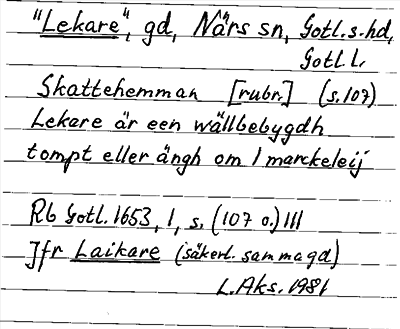 "Lekare", gd, Närs sn, Gotl.s.hd,
Gotl.l.
Skattehemman [rubr.] (s.107)
Lekare är een wällbebygdh
tompt eller ängh om 1 marckeleij
Rb Gotl. 1653, 1, s. (107 o.) 111
Jfr Laikare (säkerl. samma gd)
L.Aks. 1981